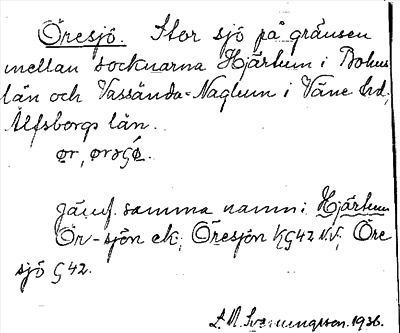 Öresjö. Stor sjö på gränsen
mellan socknarna Hjärtum i Bohus
län och Vassända-Naglum i Väne hd,
Älfsborgs län.
Jämf. samma namn i Hjärtum
Ör-sjön ek, Öresjön
Öre
sjö G42.
Svenningsson. 1936.